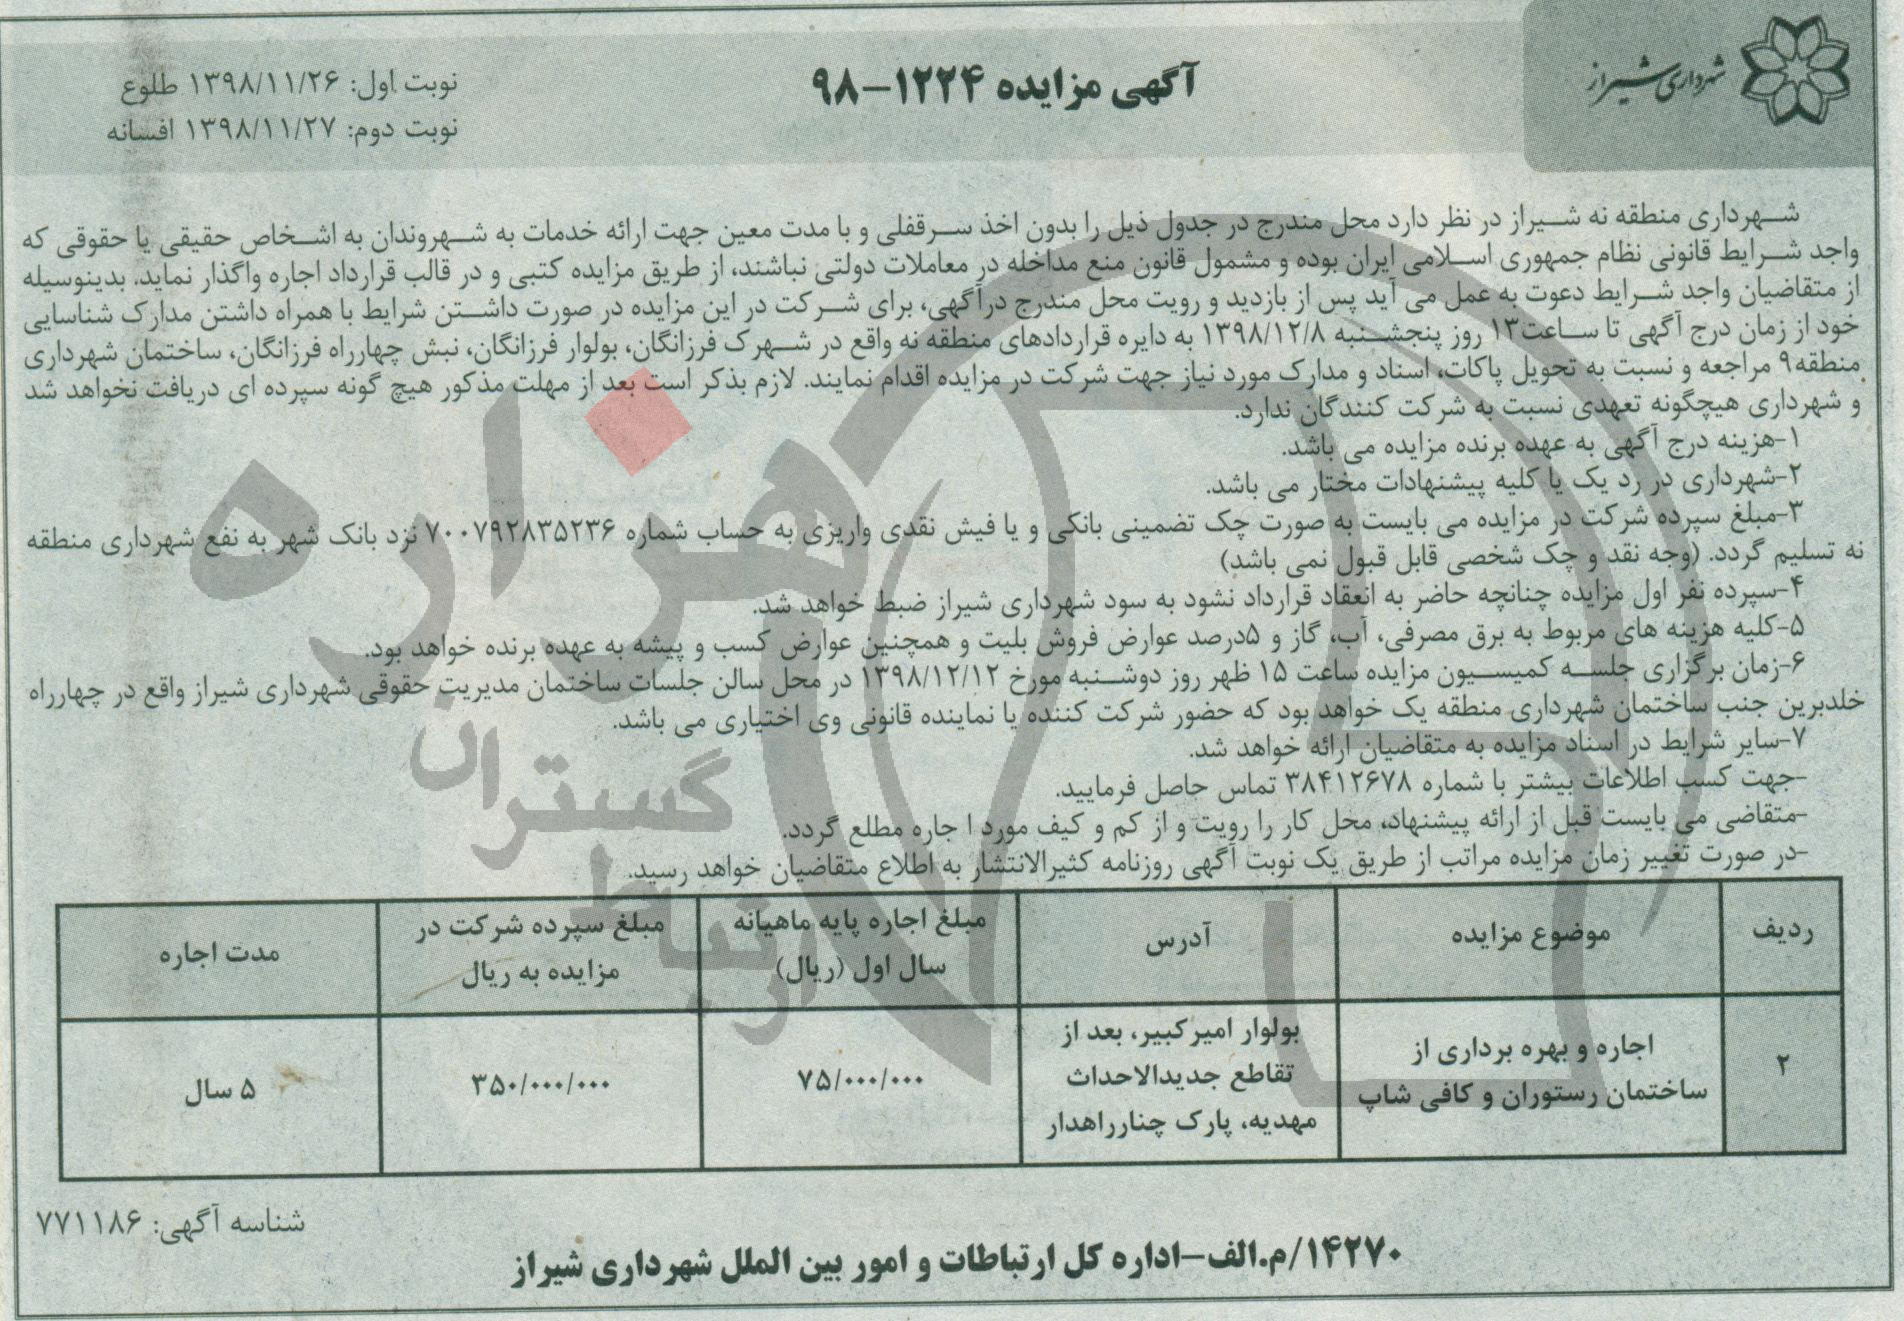 شهرداری شیراز
آگهی مزایده ۱۲۲۴-۹۸
نوبت اول: ۱۳۹۸/۱۱/۲۶ طلوع
نوبت دوم: ۱۳۹۸/۱۱/۲۷ افسانه
شهرداری منطقه نه شیراز در نظر دارد محل مندرج در جدول ذیل را بدون اخذ سرقفلی و با مدت معین جهت ارائه خدمات به شهروندان به اشخاص حقیقی یا حقوقی که
واجد شرایط قانونی نظام جمهوری اسلامی ایران بوده و مشمول قانون منع مداخله در معاملات دولتی نباشند، از طریق مزایده کتبی و در قالب قرارداد اجاره واگذار نماید. بدینوسیله
از متقاضیان واجد شرایط دعوت به عمل می آید پس از بازدید و رویت محل مندرج درآگهی، برای شرکت در این مزایده در صورت داشتن شرایط با همراه داشتن مدارک شناسایی
خود از زمان درج آگهی تا ساعت۱۳ روز پنجشنبه ۱۳۹۸/۱۲/۸ به دایره قراردادهای منطقه نه واقع در شهرک فرزانگان، بولوار فرزانگان، نبش چهارراه فرزانگان، ساختمان شهرداری
منطقه۹ مراجعه و نسبت به تحویل پاکات، اسناد و مدارک مورد نیاز جهت شرکت در مزایده اقدام نمایند. لازم بذکر است بعد از مهلت مذکور هیچ گونه سپرده ای دریافت نخواهد شد
و شهرداری هیچگونه تعهدی نسبت به شرکت کنندگان ندارد.
۱-هزینه درج آگهی به عهده برنده مزایده می باشد.
۲-شهرداری در رد یک یا کلیه پیشنهادات مختار می باشد.
۳-مبلغ سپرده شرکت در مزایده می بایست به صورت چک تضمینی بانکی و یا فیش نقدی واریزی به حساب شماره ۷۰۰۷۹۲۸۳۵۲۳۶ نزد بانک شهر به نفع شهرداری منطقه
نه تسلیم گردد. (وجه نقد و چک شخصی قابل قبول نمی باشد)
۴-سپرده نفر اول مزایده چنانچه حاضر به انعقاد قرارداد نشود به سود شهرداری شیراز ضبط خواهد شد.
۵-کلیه هزینه های مربوط به برق مصرفی، آب، گاز و ۵درصد عوارض فروش بلیت و همچنین عوارض کسب و پیشه به عهده برنده خواهد بود.
۶-زمان برگزاری جلسه کمیسیون مزایده ساعت ۱۵ ظهر روز دوشنبه مورخ ۱۳۹۸/۱۲/۱۲ در محل سالن جلسات ساختمان مدیریت حقوقی شهرداری شیراز واقع در چهارراه
خلدبرین جنب ساختمان شهرداری منطقه یک خواهد بود که حضور شرکت کننده یا نماینده قانونی وی اختیاری می باشد.
۷-سایر شرایط در اسناد مزایده به متقاضیان ارائه خواهد شد.
-جهت کسب اطلاعات بیشتر با شماره ۳۸۴۱۲۶۷۸ تماس حاصل فرمایید.
-متقاضی می بایست قبل از ارائه پیشنهاد، محل کار را رویت و از کم و کیف مورد ا جاره مطلع گردد.
-در صورت تغییر زمان مزایده مراتب از طریق یک نوبت آگهی روزنامه کثیرالانتشار به اطلاع متقاضیان خواهد رسید.
ردیف
موضوع مزایده
آدرس
مبلغ اجاره پایه ماهیانه
سال اول (ریال)
مبلغ سپرده شرکت در
مزایده به ریال
مدت اجاره
۲
اجاره و بهره برداری از
ساختمان رستوران و کافی شاپ
بولوار امیرکبیر، بعد از
تقاطع جدیدالاحداث
مهدیه، پارک چنارراهدار
۷۵/۰۰۰/۰۰۰
۳۵۰/۰۰۰/۰۰۰
۵ سال
شناسه آگهی: ۷۷۱۱۸۶
۱۴۲۷۰/م.الف-اداره کل ارتباطات و امور بین الملل شهرداری شیراز
هزاره
گستران
ارتباط